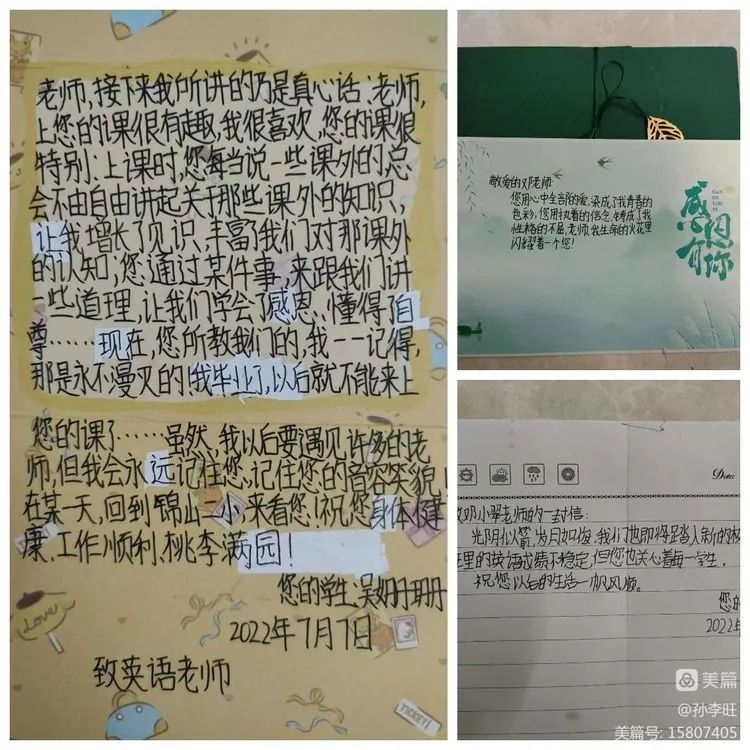 老师,接下来我所讲的乃是真心话:老师,
上您的课很有趣,我很喜欢,您的课很
特别:上课时,您每当说一些课外的总
会不由自由讲起关于那些课外的知识,
让我增长了见识,丰富了我们对那课外
的认知;您通过某件事,来跟我们讲
一些道理,让我们学会了感恩、懂得了自
尊……现在,您所教我们的,我一一记得,
那是永不漫灭的!我毕业了,以后就不能来上
您的课了……虽然,我以后要遇见许多的老
师,但我会永远记住您、记住您的音容笑貌!
在某一天,回到锦山二小,来看您!祝您身体健
康、工作顺利、桃李满园!
您的学生:吴姗珊
2022年7月7日
致英语老师
LOVE
TICKET!
敬爱的邓老师:
您用心中全部的爱,染成了我青春的
色彩;您用执着的信念,铸成了我
性格的不屈,老师,我生命的火花里
闪耀着一个您!
感恩有你
GAN
EN
YOU
NI
Date
邓小翠老师的一封信:
光阴似箭,岁月如梭,我们也即将踏入新的
里的英语成绩不稳定,但您也关心着每一学生。
祝您以后的生活一帆风顺。
您的
2022年
美篇
@孙李旺
美篇号: 15807405